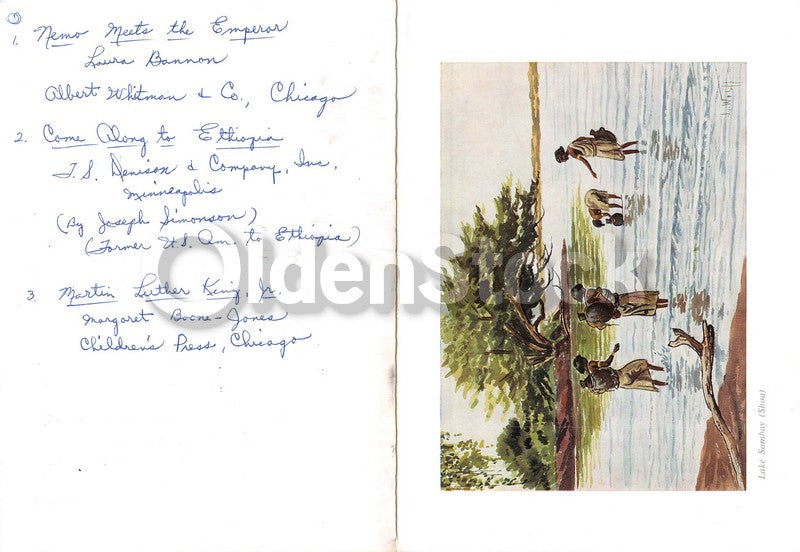 ①
1. Nemo Meets the Emperor
Laura Bannon
Albert Whitman & Co., Chicago
2. Come Along to Ethiopia
T.S. Denison & Company, Inc.
Minneapolis
(By Joseph Simonson)
(Former U.S. Am. to Ethiopia)
3. Martin Luther King, Jr.
Margaret Boone-Jones
Children's Press, Chicago
OldenStock
Lake Sombay (Shoa)